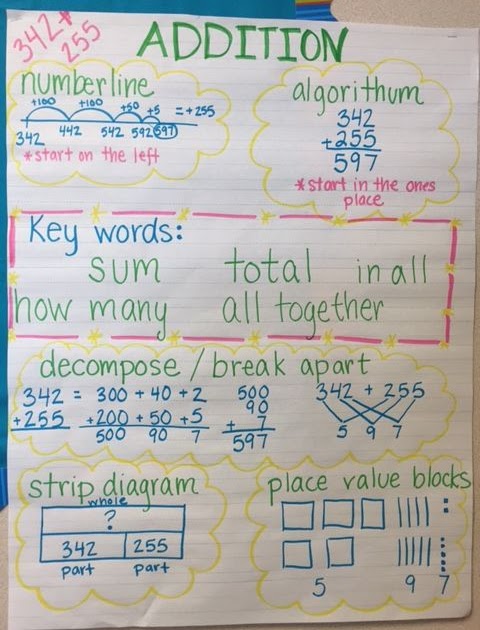 342+
255
ADDITION
numberline
+100 +100 +50 +5 =+255
342 442 542 592 597
*start on the left
algorithum
342
+255
597
*start in the ones
place
Key words:
sum total in all
how many all together
decompose / break apart
342 = 300 + 40 + 2
+255 +200 + 50 + 5
500 90 7
500
90
+ 7
597
342 + 255
5 9 7
strip diagram
whole
?
342 255
part part
place value blocks
5 9 7